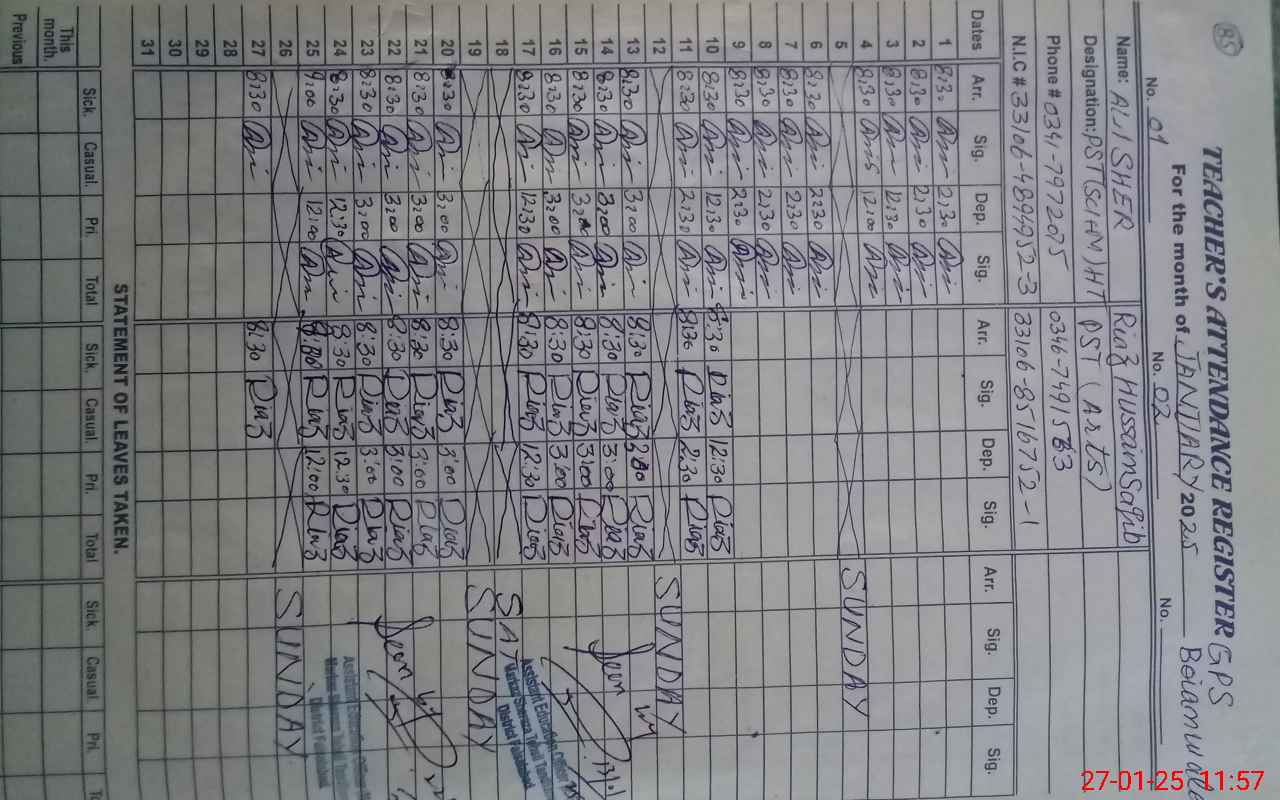 85
TEACHER'S ATTENDANCE REGISTER GPS
For the month of JANUARY 2025
No. 01 No. 02 No.
Name: ALI SHER Riaz Hussain Saqib
Designation: PST (SCI HN) HT PST (Arts)
Phone # 0341-7972075 0346-7491563
N.I.C # 33106-4894952-3 33106-8516752-1
Dates Arr. Sig. Dep. Sig. Arr. Sig. Dep. Sig. Arr. Sig. Dep. Sig.
1 8:30 Ali 2:30 Ali
2 8:30 Ali 2:30 Ali
3 8:30 Ali 12:30 Ali
4 8:30 Ali 12:00 Ali
5 SUNDAY
6 8:30 Ali 2:30 Ali
7 8:30 Ali 2:30 Ali
8 8:30 Ali 2:30 Ali
9 8:30 Ali 2:30 Ali
10 8:30 Ali 12:30 Ali 8:30 Riaz 12:30 Riaz
11 8:30 Ali 2:30 Ali 8:30 Riaz 2:30 Riaz
12 SUNDAY
13 8:30 Ali 3:00 Ali 8:30 Riaz 3:00 Riaz
14 8:30 Ali 3:00 Ali 8:30 Riaz 3:00 Riaz Seen
15 8:30 Ali 3:00 Ali 8:30 Riaz 3:00 Riaz
16 8:30 Ali 3:00 Ali 8:30 Riaz 3:00 Riaz
17 8:30 Ali 12:30 Ali 8:30 Riaz 12:30 Riaz
Assistant Education Officer
18 SAT
19 SUNDAY
20 8:30 Ali 3:00 Ali 8:30 Riaz 3:00 Riaz
21 8:30 Ali 3:00 Ali 8:30 Riaz 3:00 Riaz
22 8:30 Ali 3:00 Ali 8:30 Riaz 3:00 Riaz Seen
23 8:30 Ali 3:00 Ali 8:30 Riaz 3:00 Riaz
24 8:30 Ali 12:30 Ali 8:30 Riaz 12:30 Riaz
Assistant Education Officer
25 9:00 Ali 12:00 Ali 8:30 Riaz 12:00 Riaz
26 SUNDAY
27 8:30 Ali 8:30 Riaz
28
29
30
31
STATEMENT OF LEAVES TAKEN.
Sick. Casual. Pri. Total Sick. Casual. Pri. Total Sick. Casual. Pri.
This month.
Previous
27-01-25 11:57